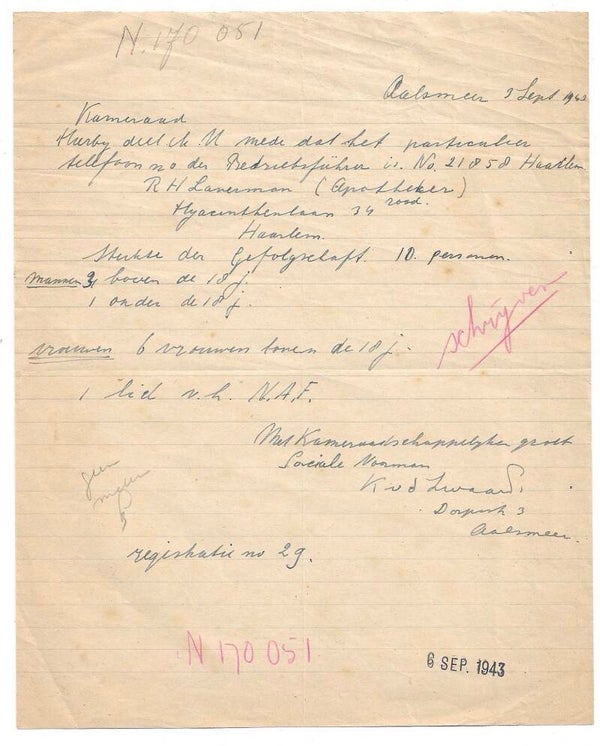 N. 170 051
Aalsmeer 3 Sept 1943
Kameraad
Hierby deel ik U mede dat het particulier
telefoon no der Bedriebsführer is. No. 21858 Haarlem
R H Laverman (Apotheker)
Hyacinthenlaan 34 rood.
Haarlem.
Sterkte der Gefolgschaft. 10. personen.
mannen 3 boven de 18 j.
1 onder de 18 j.
schrijven
vrouwen 6 vrouwen boven de 18 j.
1 lid v.h. N.A.F.
Met Kameraadschappelyken groet
Sociale Voorman
K v d Zwaard
Dorpsstr 3
Aalsmeer.
geen
registratie no 29.
N 170 051
6 SEP. 1943